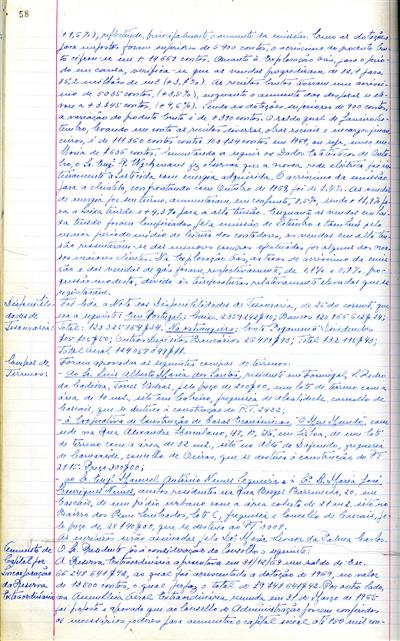 58
(+9,5%), reflectindo, principalmente, o aumento da emissão. Como as dotações
para impostos foram superiores de 5 900 contos, o acréscimo do produto bru-
to cifra-se em + 14 669 contos. Quanto à Exploração Gás, para o perío-
do em causa, verifica-se que as vendas progrediram de
milhões de m3
mo de 5 035 contos, (+8,8%), enquanto o aumento das despesas se ele-
vou a + 3 745 contos, (+9,6%). Sendo as dotações superiores de 900 contos,
a variação do produto bruto é de + 390 contos. O saldo geral de Janeiro/Se-
tembro, levando em conta as receitas diversas, obras sociais e encargos finan-
ceiros, é de 111 360 contos contra 103 724 contos em 1969, ou seja, uma me-
lhoria de 7 636 contos. Comentando a seguir os Dados Estatísticos de Ou-
tubro, o Sr. Engº fez observar que a nossa rede eléctrica foi in-
teiramente abastecida com energia adquirida. O acréscimo da emissão
para a clientela, confrontando com Outubro de 1969, foi de 1,4%. As vendas
de energia, por seu turno, aumentaram, em conjunto, 7,5%, sendo + 11,7% pa-
ra a baixa tensão e + 4,3% para a alta tensão. Enquanto as vendas em bai-
xa tensão foram beneficiadas pela emissão de Setembro e também pelo
menor período médio de leitura dos contadores, as vendas em alta ten-
são ressentiram-se das menores compras efectuadas por alguns dos nos-
sos maiores clientes. Na Exploração Gás, as taxas de acréscimo da emis-
são e das vendas de gás foram, respectivamente, de 1,1% e 0,7%, pro-
gressão modesta, devido às temperaturas relativamente elevadas que se
registaram.
Disponibili-
dades de
Tesouraria:
Foi lida a Nota das Disponibilidades de Tesouraria, de 25 do corrente, que
era a seguinte: Em Portugal: Caixa, Bancos
Total: No estrangeiro: Conta Pagamento Dividendos
Outros Depósitos Bancários Total:
Total Geral
Compras de
Terrenos:
Foram aprovadas as seguintes compras de terrenos:
- ao Sr. Luís Alberto Maria dos Santos, residente em Formigal, S. Pedro
da Cadeira, Torres Vedras, pelo preço de um lote de terreno com a
área de 10 m2, sito em Cobre, freguesia de Alcabideche, concelho de
Cascais, que se destina à construção do P.T. 2432;
- à Cooperativa de Construção de Casas Económicas "O Meu Mundo", com
sede na Rua Alexandre Herculano, em Lisboa, de um lote
de terreno com a área de 32 m2, sito no Alto de freguesia
de Carnaxide, concelho de Oeiras, que se destina à construção do PT
2815. Preço: 300$00;
- ao Sr. Engº Manuel António Nunes e à Srª. D. Maria José
Henriques Nunes, ambos residentes na Rua Borges Barruncho, 20, em
Cascais, de um prédio urbano com a área coberta de 21 m2, sito no
Bairro dos Lote C, freguesia e concelho de Cascais, pe-
lo preço de que se destina ao PT 3008.
As escrituras serão assinadas pela Drª. Maria Leonor da Palma Carlos.
Aumento do
Capital por
Incorporação
da Reserva
Extraordinária:
O Sr. Presidente fez à consideração do Conselho o seguinte:
A Reserva Extraordinária apresentava em 31/12/69 um saldo de Esc.
à qual foi acrescentada a dotação de 1969, no valor
de 12 500 contos, o que perfaz o total de Por outro lado,
na Assembleia Geral Extraordinária, reunida em 31 de Março de 1965
foi proposto e aprovado que ao Conselho de Administração fossem conferidos
os necessários poderes para aumentar o capital social até 150 mil con-